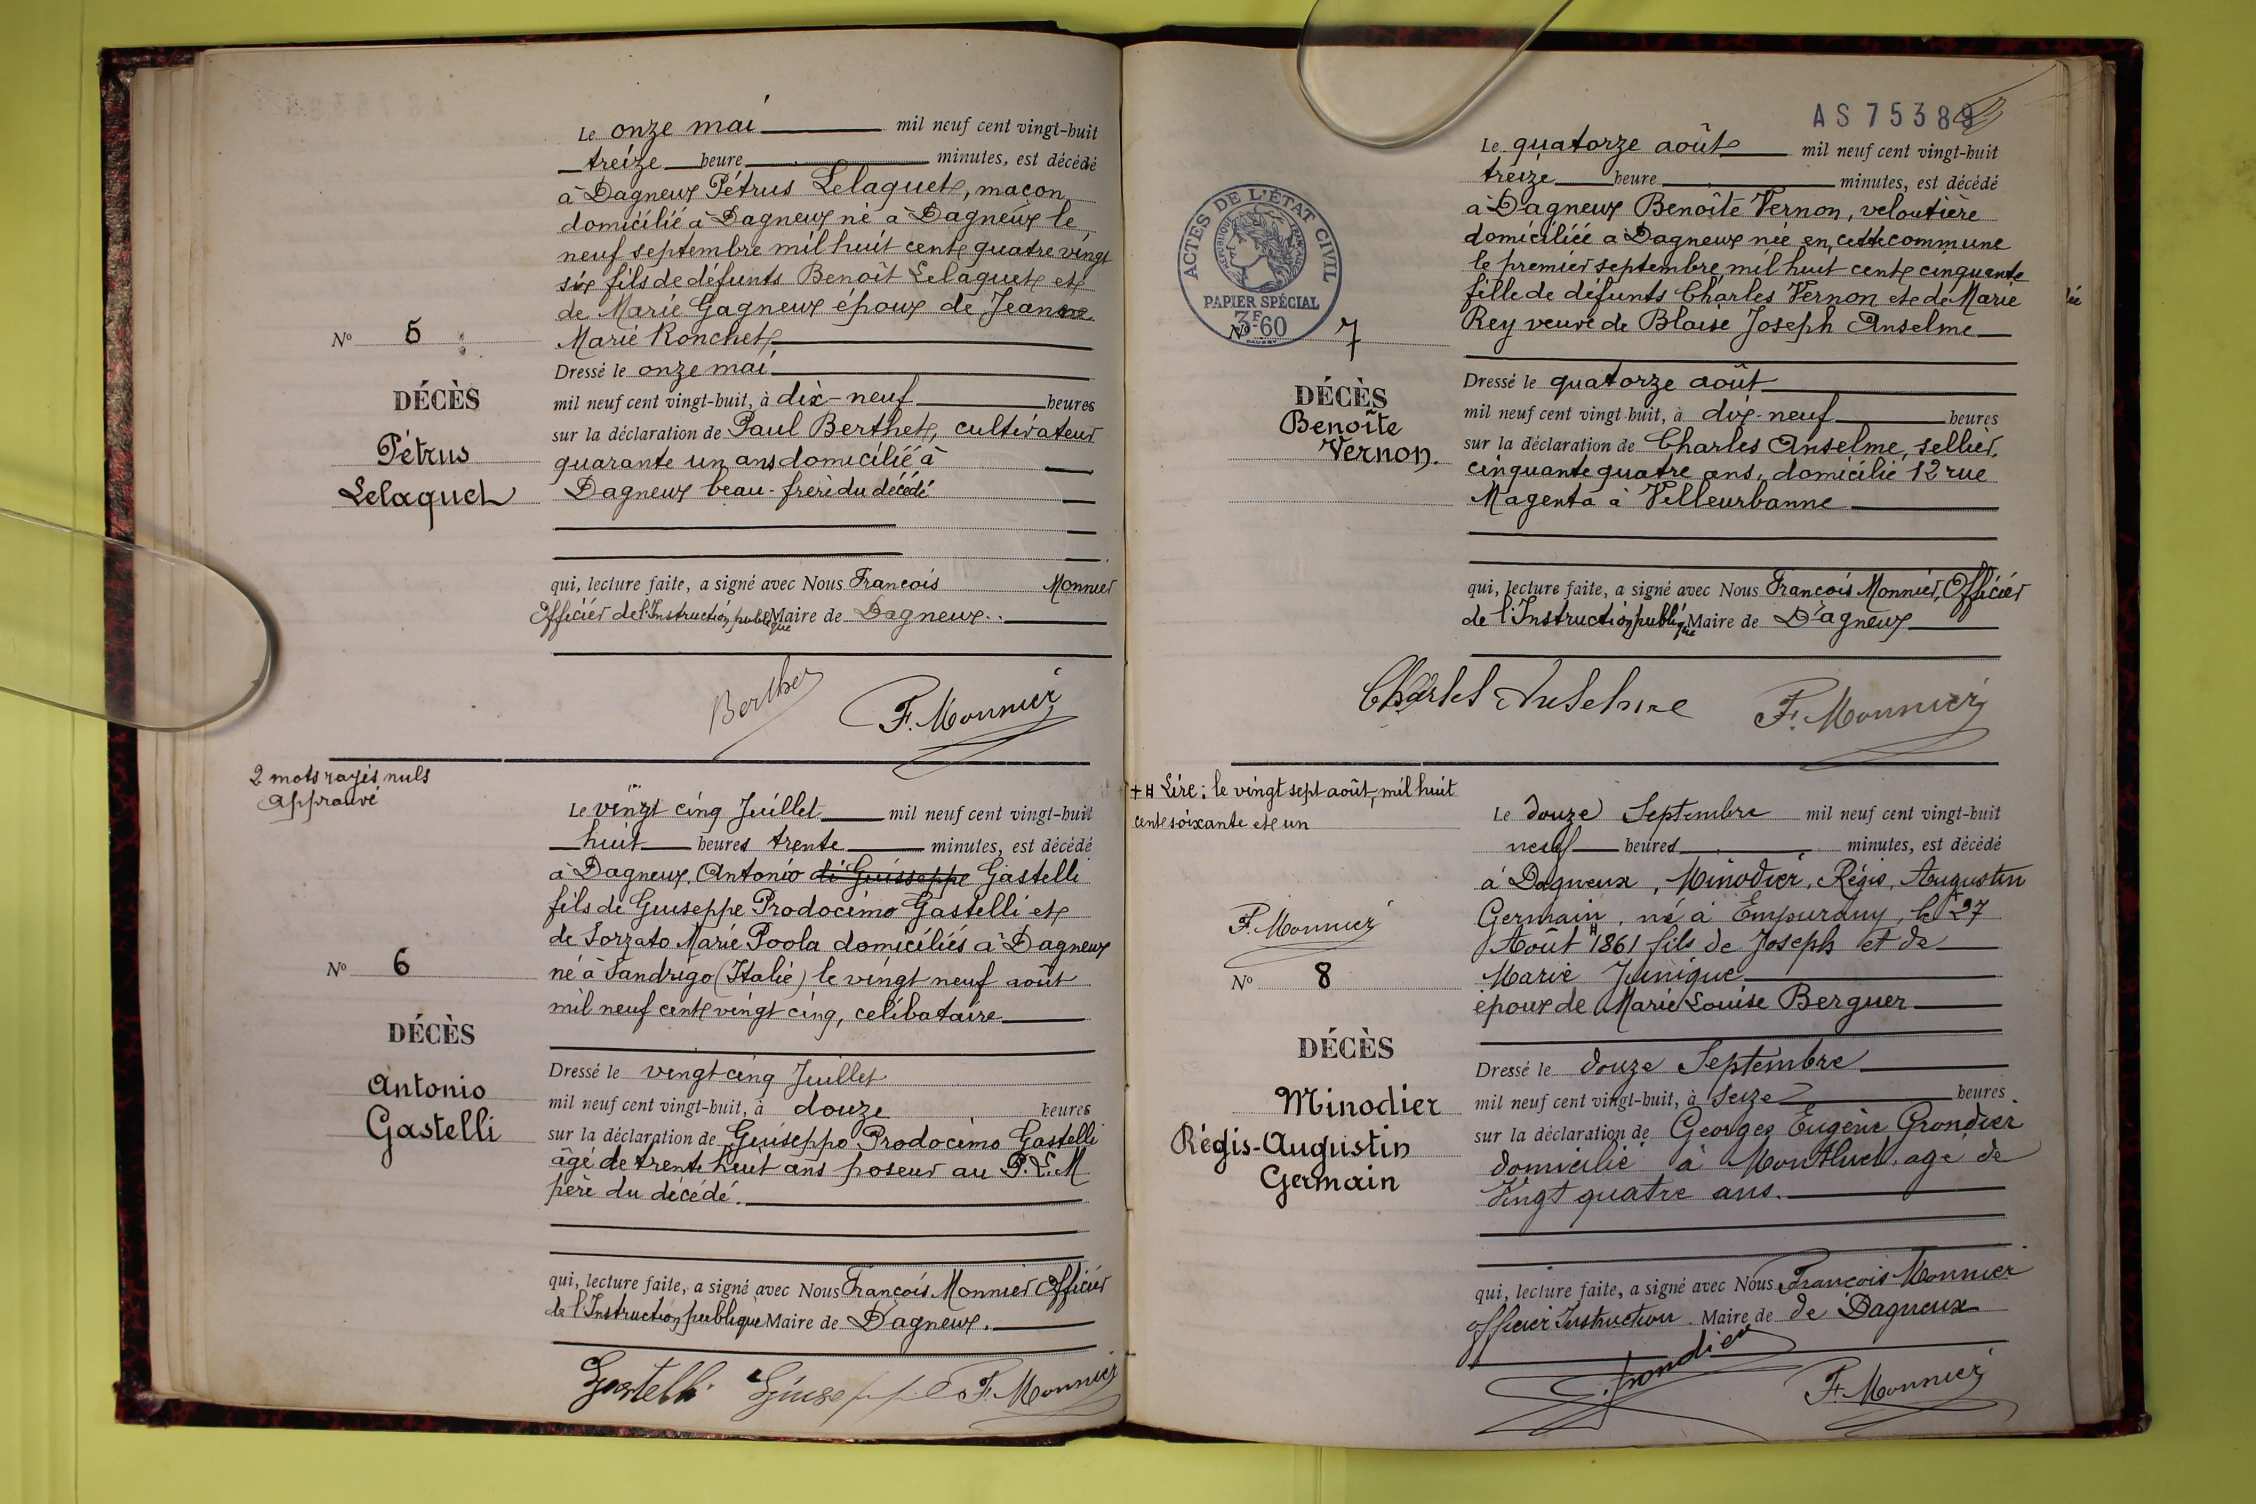 Le onze mai mil neuf cent vingt-huit
treize heure minutes, est décédé
à Dagneux Pétrus Lelaquet, maçon
domicilié à Dagneux né à Dagneux le
neuf septembre mil huit cent quatre vingt
six fils de défunts Benoît Lelaquet et
de Marie Gagneux époux de Jeanne
Marie Ronchet
No 5
DÉCÈS
Pétrus
Lelaquet
Dressé le onze mai
mil neuf cent vingt-huit, à dix-neuf heures
sur la déclaration de Paul Berthet, cultivateur
quarante un ans domicilié à
Dagneux beau-frère du décédé
qui, lecture faite, a signé avec Nous François Monnier
Officier de l'Instruction publique Maire de Dagneux.
Berthet F. Monnier
2 mots rayés nuls
approuvé
Le vingt cinq Juillet mil neuf cent vingt-huit
huit heures trente minutes, est décédé
à Dagneux, Antonio di Guisseppe Gastelli
fils de Guiseppe Prodocimo Gastelli et
de Sorzato Marie Poola domiciliés à Dagneux
né à Sandrigo (Italie) le vingt neuf août
mil neuf cent vingt cinq, célibataire
No 6
DÉCÈS
Antonio
Gastelli
Dressé le vingt cinq Juillet
mil neuf cent vingt-huit, à douze heures
sur la déclaration de Guiseppo Prodocimo Gastelli
âgé de trente huit ans poseur au P.L.M
père du décédé.
qui, lecture faite, a signé avec Nous François Monnier Officier
de l'Instruction publique Maire de Dagneux.
Gastelli Giuseppe F. Monnier
AS 75389
Le quatorze août mil neuf cent vingt-huit
treize heure minutes, est décédé
à Dagneux Benoîte Vernon, veloutière
domiciliée à Dagneux née en cette commune
le premier septembre mil huit cent cinquante
fille de défunts Charles Vernon et de Marie
Rey veuve de Blaise Joseph Anselme
ACTES DE L'ÉTAT CIVIL
RÉPUBLIQUE FRANÇAISE
PAPIER SPÉCIAL
3F60
No 7
DÉCÈS
Benoîte
Vernon.
Dressé le quatorze août
mil neuf cent vingt-huit, à dix-neuf heures
sur la déclaration de Charles Anselme, sellier,
cinquante quatre ans, domicilié 12 rue
Magenta à Villeurbanne
qui, lecture faite, a signé avec Nous François Monnier, Officier
de l'Instruction publique Maire de Dagneux
Charles Anselme F. Monnier
+ H Lire : le vingt sept août, mil huit
cent soixante et un
Le douze Septembre mil neuf cent vingt-huit
neuf heures minutes, est décédé
à Dagneux, Minodier, Régis, Augustin
Germain, né à Empurany, le 27
Août 1861 fils de Joseph et de
Marie Junique
époux de Marie Louise Berguer
F. Monnier
No 8
DÉCÈS
Minodier
Régis-Augustin
Germain
Dressé le douze Septembre
mil neuf cent vingt-huit, à Seize heures
sur la déclaration de Georges Eugène Grondier
domicilié à Montluel. agé de
Vingt quatre ans.
qui, lecture faite, a signé avec Nous François Monnier
officier Instruction Maire de de Dagneux
Grondier F. Monnier